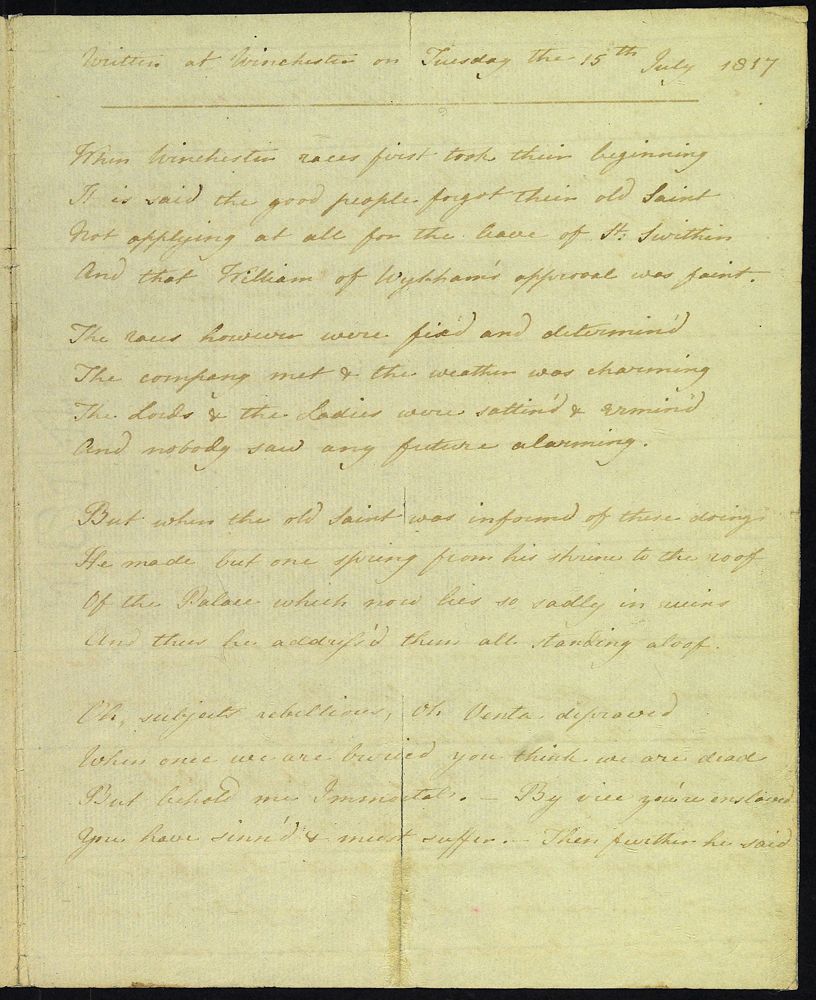 Written at Winchester on Tuesday the 15th July 1817
When Winchester races first took their beginning
It is said the good people forgot their old Saint
Not applying at all for the leave of St. Swithin
And that William of Wykham's approval was faint.
The races however were fix'd and determin'd
The company met & the weather was charming
The Lords & the Ladies were sattin'd & ermin'd
And nobody saw any future alarming.
But when the old Saint was informed of these doings
He made but one spring from his shrine to the roof
Of the Palace which now lies so sadly in ruins
And thus he address'd them all standing aloof.
Oh, subjects rebellious, Oh Venta depraved
When once we are buried you think we are dead
But behold me Immortal. — By vice you're enslaved
You have sinn'd & must suffer. — Then further he said